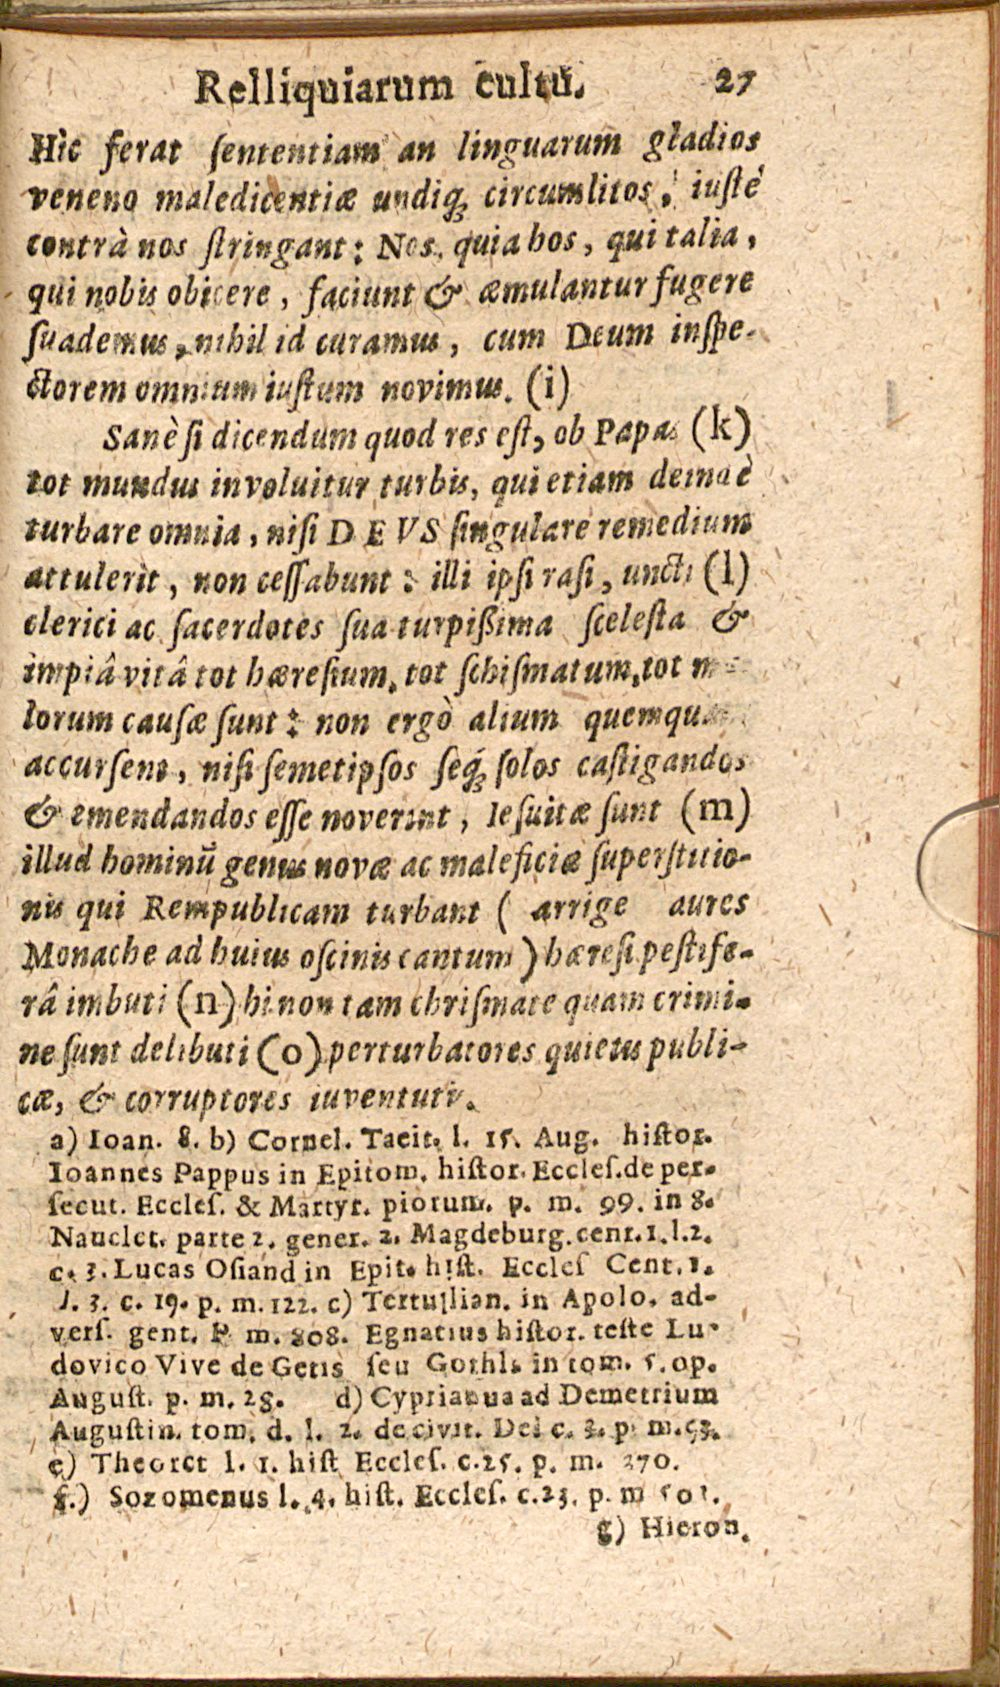 Relliquiarum cultū. 27
Hìc ferat ſententiam an linguarum gladios
veneno maledicentiæ undiq́; circumlitos, iuſtè
contrà nos ſtringant: Nos, quia hos, qui talia,
qui nobis obicere, faciunt & æmulantur fugere
ſuademus, nihil id curamus, cum Deum inſpe-
ctorem omnium iuſtum novimus. (i)
Sanè ſi dicendum quod res eſt, ob Papas (k)
tot mundus involuitur turbis, qui etiam
turbare omnia, niſi DEVS ſingulare remedium
attulerit, non ceſſabunt: illi ipſi raſi, uncti (l)
clerici ac ſacerdotes ſua turpißima ſceleſta &
impiâ vitâ tot hæreſium, tot ſchiſmatum, tot
lorum cauſæ ſunt: non ergò alium quemquam
accurſent, niſi ſemetipſos ſeq́; ſolos caſtigandos
& emendandos eſſe noverint, Ieſuitæ ſunt (m)
illud hominū genus novæ ac maleficiæ ſuperſtitio-
nis qui Rempublicam turbant ( arrige aures
Monache ad huius oſcinis cantum ) hæreſi peſtife-
râ imbuti (n) hi non tam chriſmate quam crimi-
ne ſunt delibuti (o) perturbatores quietis publi-
cæ, & corruptores iuventutis.
a) Ioan. 8. b) Cornel. Tacit. l. 15. Aug. hiſtor.
Ioannes Pappus in Epitom. hiſtor. Eccleſ. de per-
ſecut. Eccleſ. & Martyr. piorum. p. m. 99. in 8.
Nauclet. parte 2. gener. 2. Magdeburg. cent. 1. l. 2.
c. 3. Lucas Oſiand in Epit. hiſt. Eccleſ Cent. 1.
l. 3. c. 19. p. m. 122. c) Tertullian. in Apolo. ad-
verſ. gent. P m. 808. Egnatius hiſtor. teſte Lu-
dovico Vive de Getis ſeu Gothis in tom. 5. op.
Auguſt. p. m. 28. d) Cyprianus ad Demetrium
Auguſtin. tom. d. l. 2. de civit. Dei c. 3. p m. 53.
e) Theoret l. 1. hiſt Eccleſ. c. 25. p. m. 270.
f.) Sozomenus l. 4. hiſt. Eccleſ. c. 23. p. m 501.
g) Hieron.